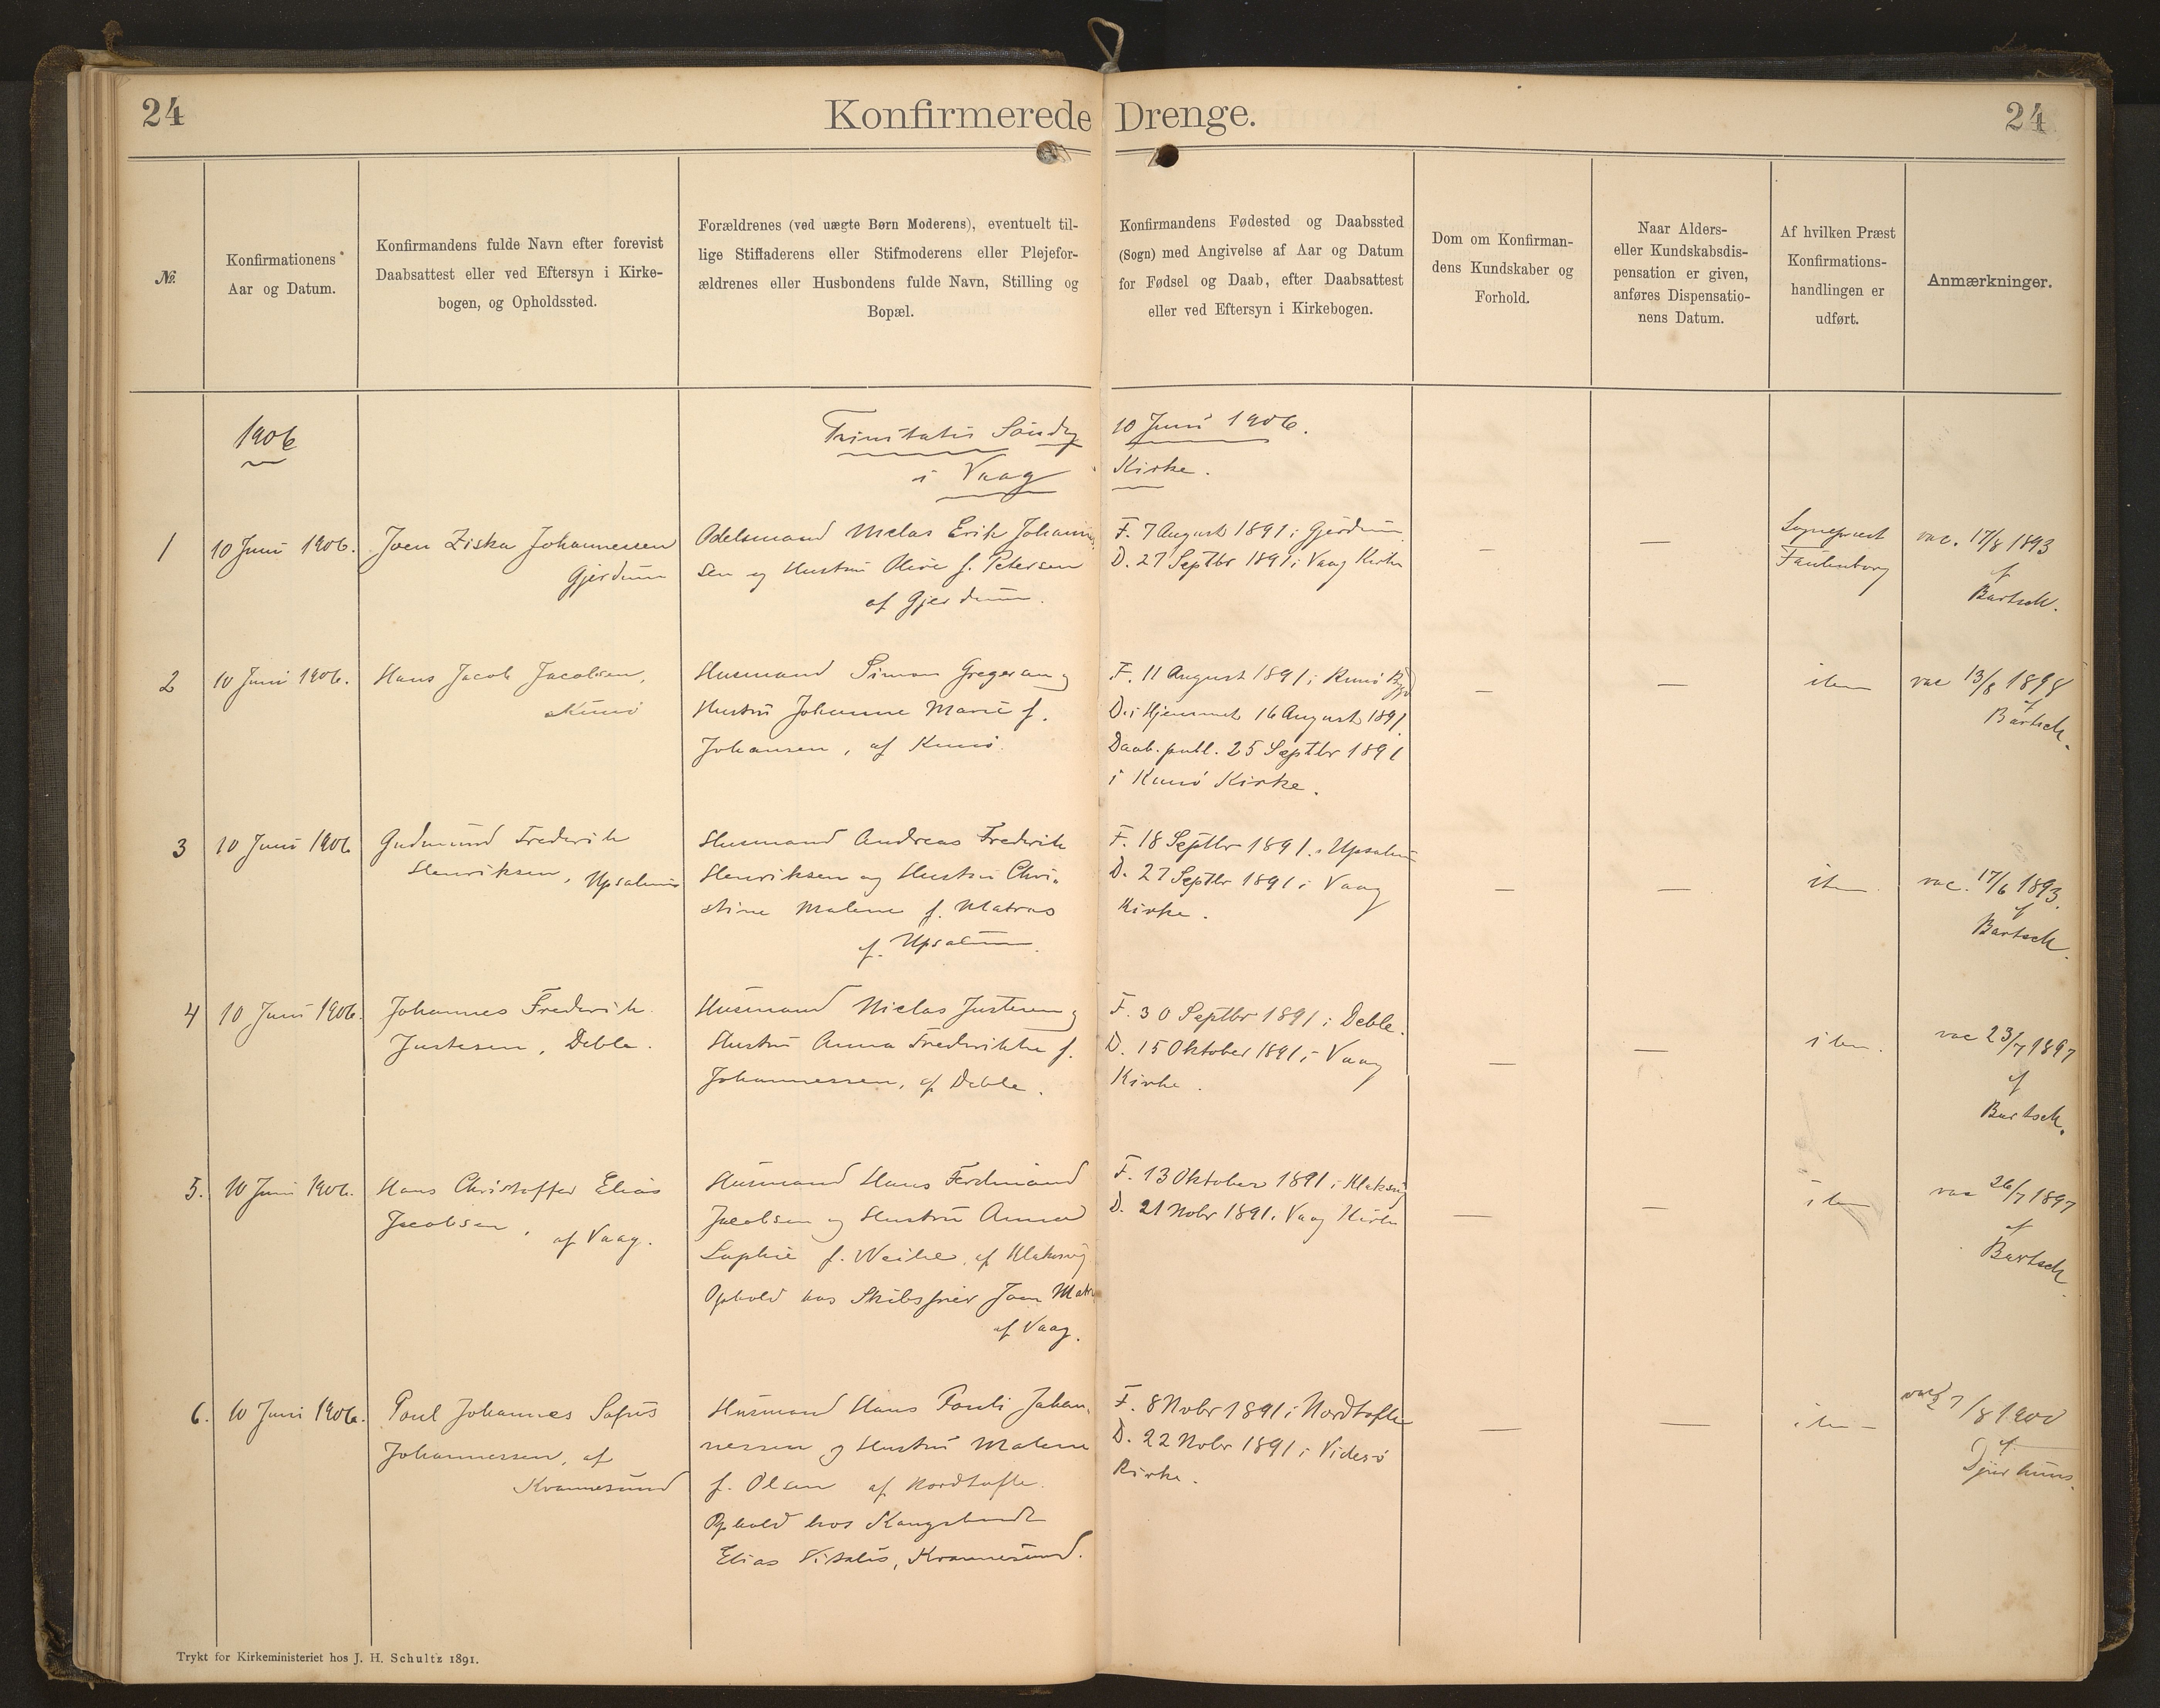 24
Konfirmerede Drenge.
24
№.
Konfirmationens
Aar og Datum.
Konfirmandens fulde Navn efter forevist
Daabsattest eller ved Eftersyn i Kirke-
bogen, og Opholdssted.
Forældrenes (ved uægte Børn Moderens), eventuelt til-
lige Stiffaderens eller Stifmoderens eller Plejefor-
ældrenes eller Husbondens fulde Navn, Stilling og
Bopæl.
Konfirmandens Fødested og Daabssted
(Sogn) med Angivelse af Aar og Datum
for Fødsel og Daab, efter Daabsattest
eller ved Eftersyn i Kirkebogen.
Dom om Konfirman-
dens Kundskaber og
Forhold.
Naar Alders-
eller Kundskabsdis-
pensation er given,
anføres Dispensatio-
nens Datum.
Af hvilken Præst
Konfirmations-
handlingen er
udført.
Anmærkninger.
1906
Trinitatis Søndag 10 Juni 1906.
i Vaag Kirke.
1
10 Juni 1906.
Joen Ziska Johannessen
Gjerdum
Odelsmand Niclas Erik Johannes
sen og Hustru Olive f. Petersen
af Gjerdum.
F. 7 August 1891 i Gjerdum
D. 27 Septbr 1891 i Vaag Kirke
—
—
Sognepræst
vac. 17/8 1893
af
Bartsch.
2
10 Juni 1906.
Hans Jacob Jacobsen,
Kunø
Husmand Simon Gregersen og
Hustru Johanne Marie f.
Johansen, af Kunø.
F. 11 August 1891 i Kunø Bygd
D. i Hjemmet 16 August 1891.
Daab. publ. 25 Septbr 1891
i Kunø Kirke.
—
—
item
vac 13/8 1898
af
Bartsch.
3
10 Juni 1906
Gudmund Frederik
Henriksen, Upsalum
Husmand Andreas Frederik
Henriksen og Hustru Chri-
stine Malene f. Matras
af Upsalum.
F. 18 Septbr 1891 i Upsalum
D. 27 Septbr 1891 i Vaag
Kirke.
—
—
item
vac. 17/6 1893.
af
Bartsch.
4
10 Juni 1906.
Johannes Frederik
Justesen, Deble.
Husmand Niclas Justesen og
Hustru Anna Frederikke f.
Johannessen, af Deble.
F. 30 Septbr 1891 i Deble.
D. 15 Oktober 1891 i Vaag
Kirke.
—
—
item.
vac 23/7 1897
af
Bartsch.
5.
10 Juni 1906.
Hans Christoffer Elias
Jacobsen, af Vaag.
Husmand Hans Ferdinand
Jacobsen og Hustru Anna
Sophie f. Weihe, af Klaksvig
Ophold hos Skibsfører Joen Matr
af Vaag.
F. 13 Oktober 1891 i Klaksvig
D. 21 Nobr 1891 i Vaag Kirke
—
—
item
vac 26/7 1897
af
Bartsch.
6.
10 Juni 1906.
Poul Johannes Sofus
Johannessen, af
Kvannesund
Husmand Hans Pauli Johan-
nessen og Hustru Malene
f. Olsen af Nordtofte.
Ophold hos Kongsbonde
Elias Vitalis, Kvannesund.
F. 8 Nobr 1891 i Nordtofte
D. 22 Nobr 1891 i Viderø
Kirke.
—
—
item
1900
af
Djurhuus.
Trykt for Kirkeministeriet hos J. H. Schultz 1891.